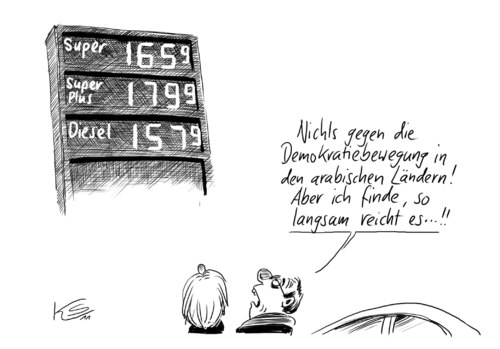 Super 1659
Super
Plus 1799
Diesel 1579
Nichts gegen die
Demokratiebewegung in
den arabischen Ländern!
Aber ich finde, so
langsam reicht es...!!